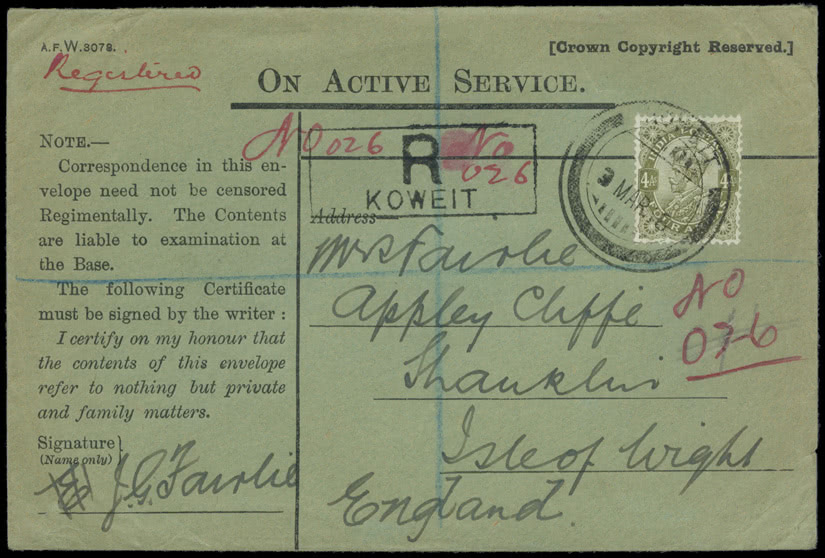 A.F.W.3078.
[Crown Copyright Reserved.]
Registered
ON ACTIVE SERVICE.
NOTE.—
Correspondence in this en-
velope need not be censored
Regimentally. The Contents
are liable to examination at
the Base.
The following Certificate
must be signed by the writer :
I certify on my honour that
the contents of this envelope
refer to nothing but private
and family matters.
Signature
(Name only)
J.G. Fairlie
NO 026
R
No
026
KOWEIT
MAR
4
Address
Mrs Fairlie
Appley Cliffe
Shanklin
Isle of Wight
England.
NO
026